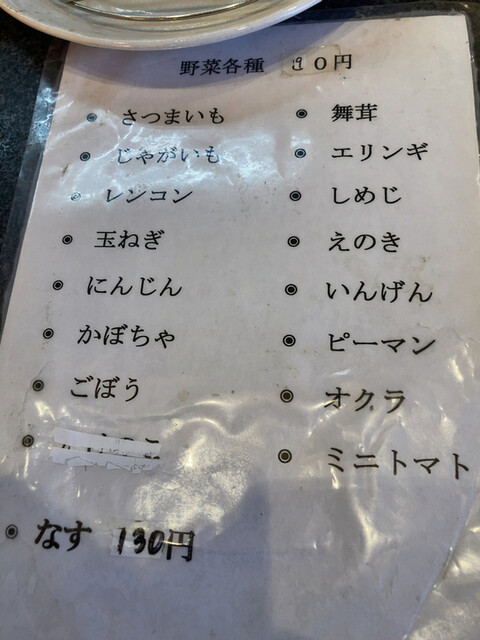 野菜各種 90円
◉ さつまいも
◉ じゃがいも
◉ レンコン
◉ 玉ねぎ
◉ にんじん
◉ かぼちゃ
◉ ごぼう
◉
◉ なす 130円
◉ 舞茸
◉ エリンギ
◉ しめじ
◉ えのき
◉ いんげん
◉ ピーマン
◉ オクラ
◉ ミニトマト